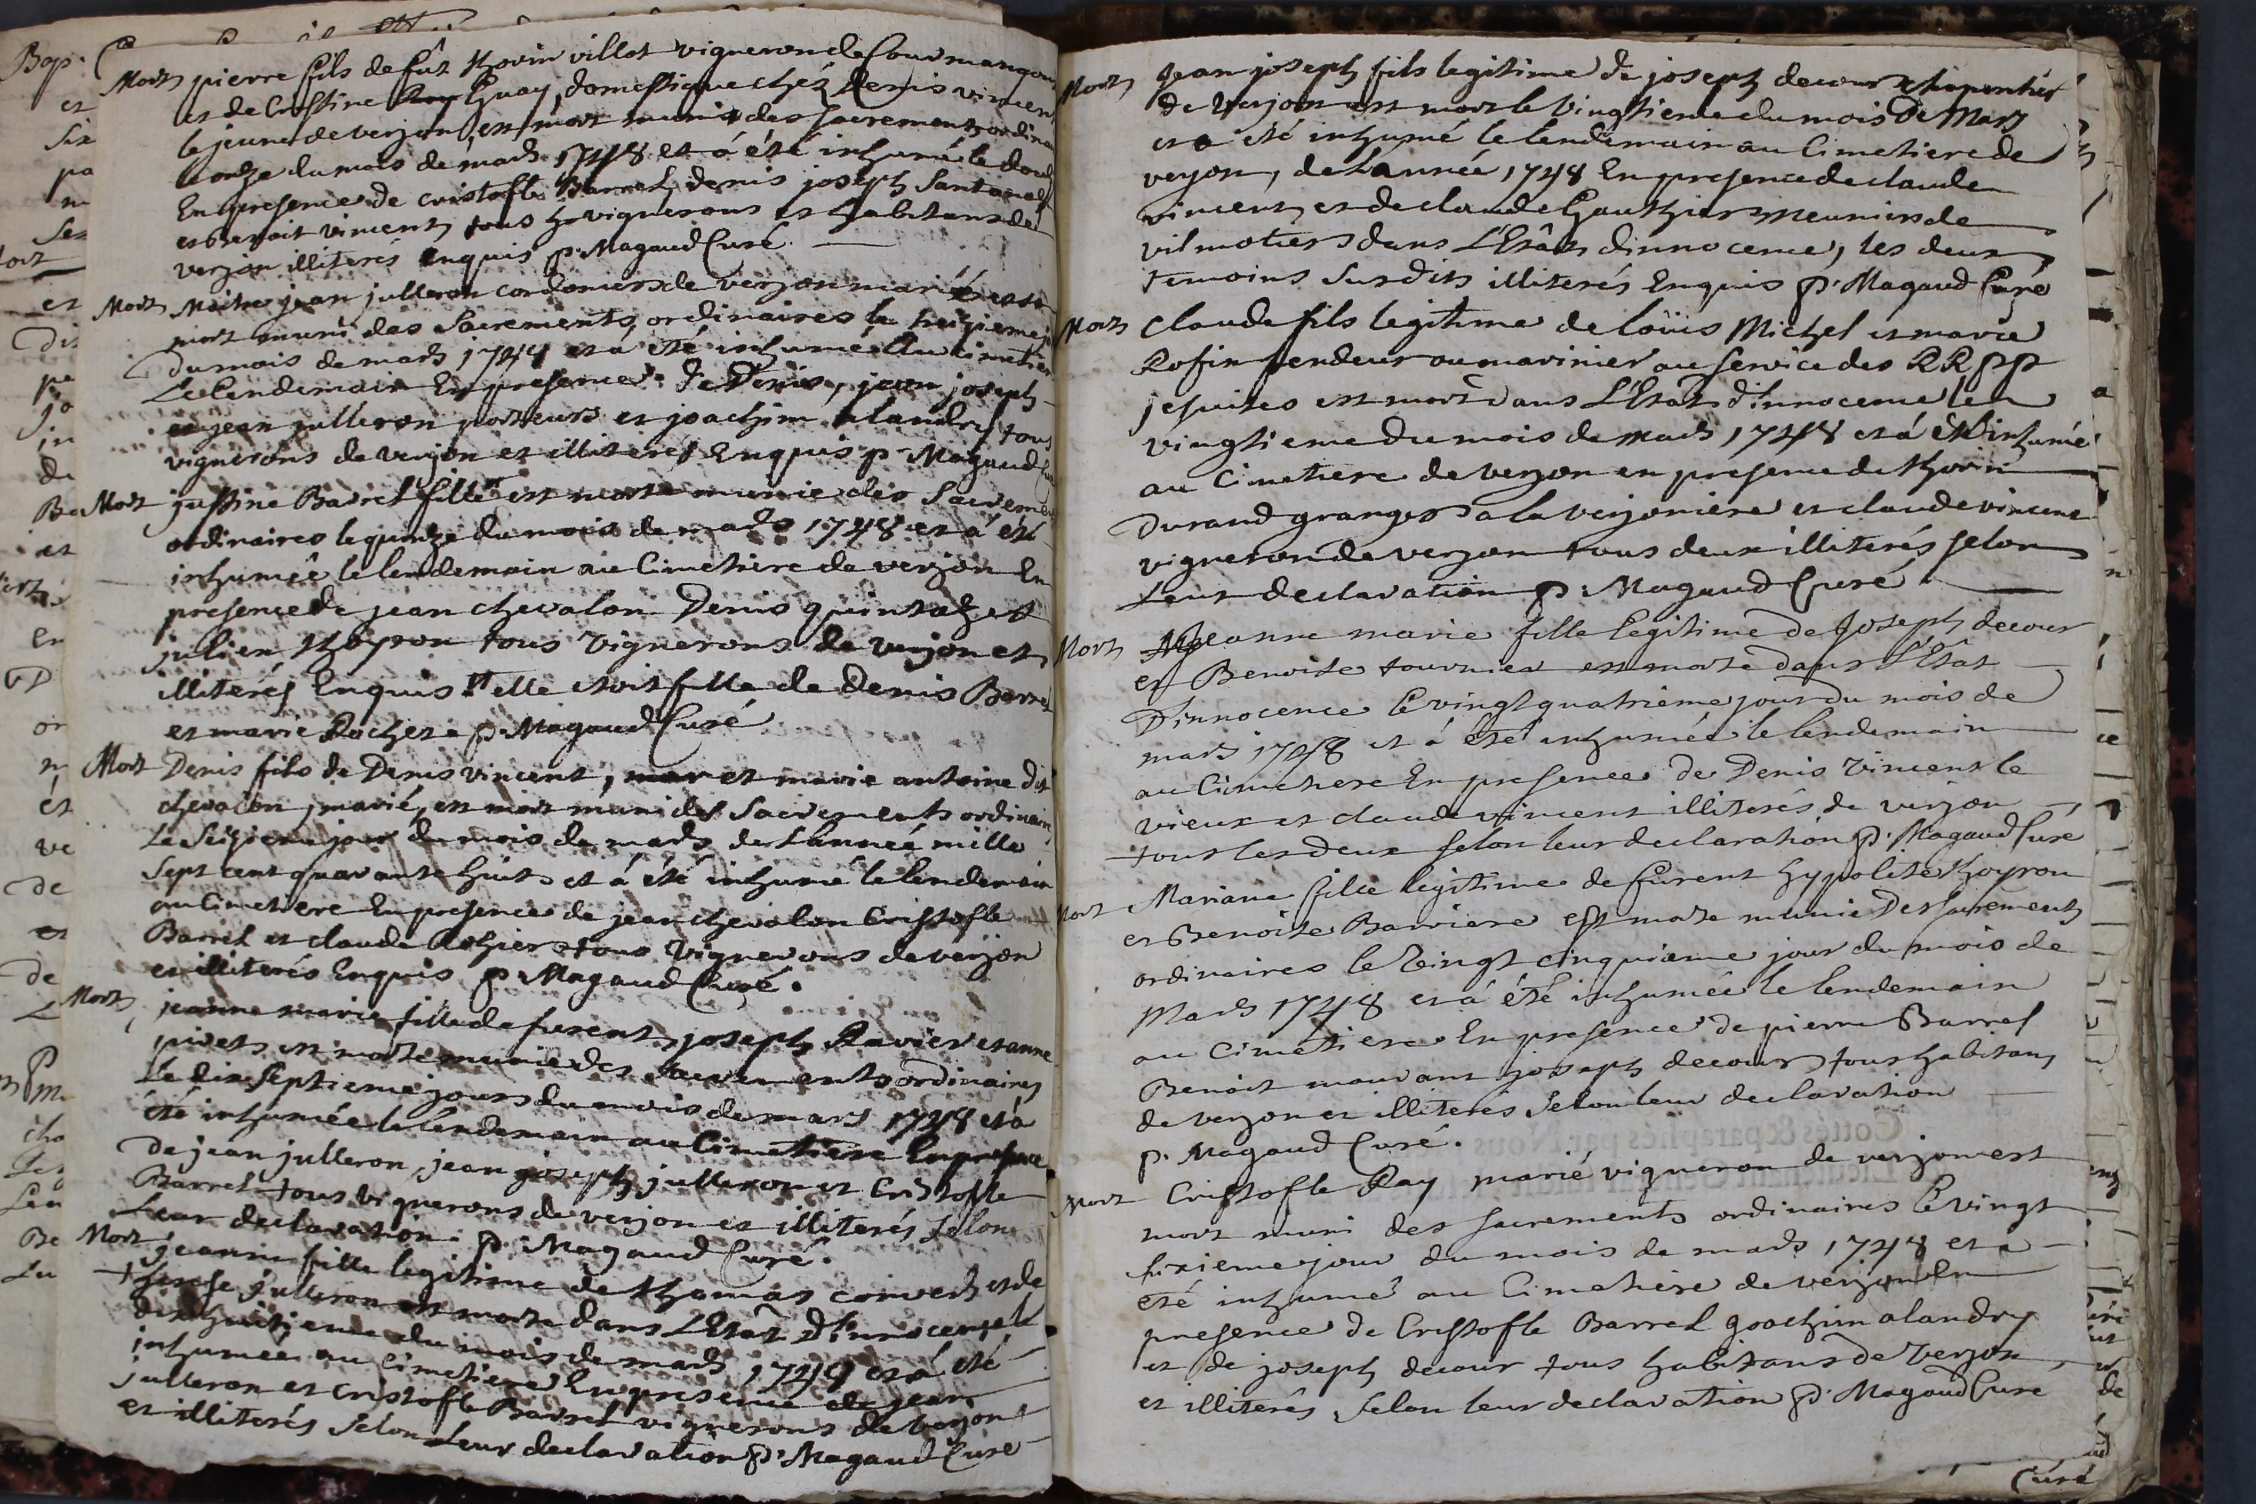 Mort pierre fils de fût thovin villot vigneron de Courmangoux
et de Cristine Guay, domestique chéz Denis vincent
le jeune de verjon, est mort muni des sacrements ordinai
le onze du mois de mars 1748 et á été inhumé le
En presence de cristofle Barrel, denis joseph
et Benoit vincent tous vignerons et habitans de
verjon illiterés Enquis P. Magaud Curé.
Mort Maitre jean julleron cordonnier de verjon marié est
mort muni des Sacrements, ordinaires le treizieme
Du mois de mars 1748 et á été inhumé Au Cimetiere
Le lendemain En presence de Denis, jean joseph
et jean julleron et joachim alandry tous
vignerons de verjon et illiterés Enquis P. Magaud
Mort justine Barrel fille est morte munie des Sacremen
ordinaires le quinze du mois de mars 1748 et á été
inhumée le lendemain au Cimetiere de verjon En
presence de jean chevalon Denis quintal et
julien thoyron tous vignerons de verjon et
illiterés Enquis elle étoit fille de Denis Barrel
et marie Rochet P. Magaud Curé
Mort Denis fils de Denis vincent, et marie antoine dit
chevalon, marié, est mort muni des Sacrements ordinair
Le Seizieme jour du mois de mars de L'année mille
Sept cent quarante huit et á été inhumé le lendemain
au Cimetiere En presence de jean chevalon Cristofle
Barrel et claude tous vignerons de verjon
et illiterés Enquis P. Magaud Curé.
Mort jeanne marie fille de furent joseph Ravier et anne
est morte munie des Sacrements ordinaires
Le dix Septieme jour du mois de mars 1748 et á
été inhumée le lendemain au Cimetiere En presence
De jean julleron, jean joseph julleron et Cristofle
Barrel tous vignerons de verjon et illiterés Selon
Leur declaration. P. Magaud Curé.
Mort jeanne fille legitime de thomas convert et de
therese julleron est morte dans L'Etât D'innocence le
dix huitieme du mois de mars 1748 et á été
inhumée au Cimetiere En presence de jean
julleron et Cristofle Barrel vignerons de verjon
et illiterés Selon Leur declaration P. Magaud Curé
Mort Jean joseph fils legitime de joseph decour charpentier
de verjon est mort le vingtieme du mois De Mars
et a été inhumé le lendemain au Cimetiere de
verjon, de L'année 1748 En presence de claude
vincent et de claude Gauthier meunier de
vilmotier dans L'Etât dinnocence, les deux
temoins Susdits illiterés Enquis P. Magaud Curé
Mort Claude fils legitime de loüis Michel et marie
Rofin ou marinier au service des RR PP
jesuites est mort dans L'Etat d'Innocence le
vingtieme du mois de mars 1748 et á été inhumé
au Cimetiere de verjon en presence de thovin
Durand granger a la verjoniere et claude vincent
vigneron de verjon tous deux illiterés selon
Leur declaration P. Magaud Curé.
Mort Jeanne marie fille legitime de Joseph decour
et Benoite tournier est morte dans L'Etât
D'innocence le vingt quatrieme jour du mois de
mars 1748 et á été inhumée le lendemain
au Cimetiere En presence de Denis vincent le
vieux et claude vincent illiterés de verjon
tous les deux selon leur declaration P. Magaud Curé
Mort Mariane fille legitime de furent hypolite thoyron
et Benoite Barriere est morte munie Des sacrements
ordinaires le vingt cinquieme jour du mois de
Mars 1748 et á été inhumée le lendemain
au Cimetiere En presence de pierre Barrel
Benoit mauvant joseph decour tous habitans
de verjon et illiterés Selon leur declaration
P. Magaud Curé.
Mort Cristofle Ray marié vigneron de verjon est
mort muni des sacrements ordinaires le vingt
sixieme jour du mois de mars 1748 et a
été inhumé au Cimetiere de verjon En
presence de Cristofle Barrel joachim alandry
et de joseph decour tous habitans de verjon
et illiterés selon leur declaration P. Magaud Curé
Curé